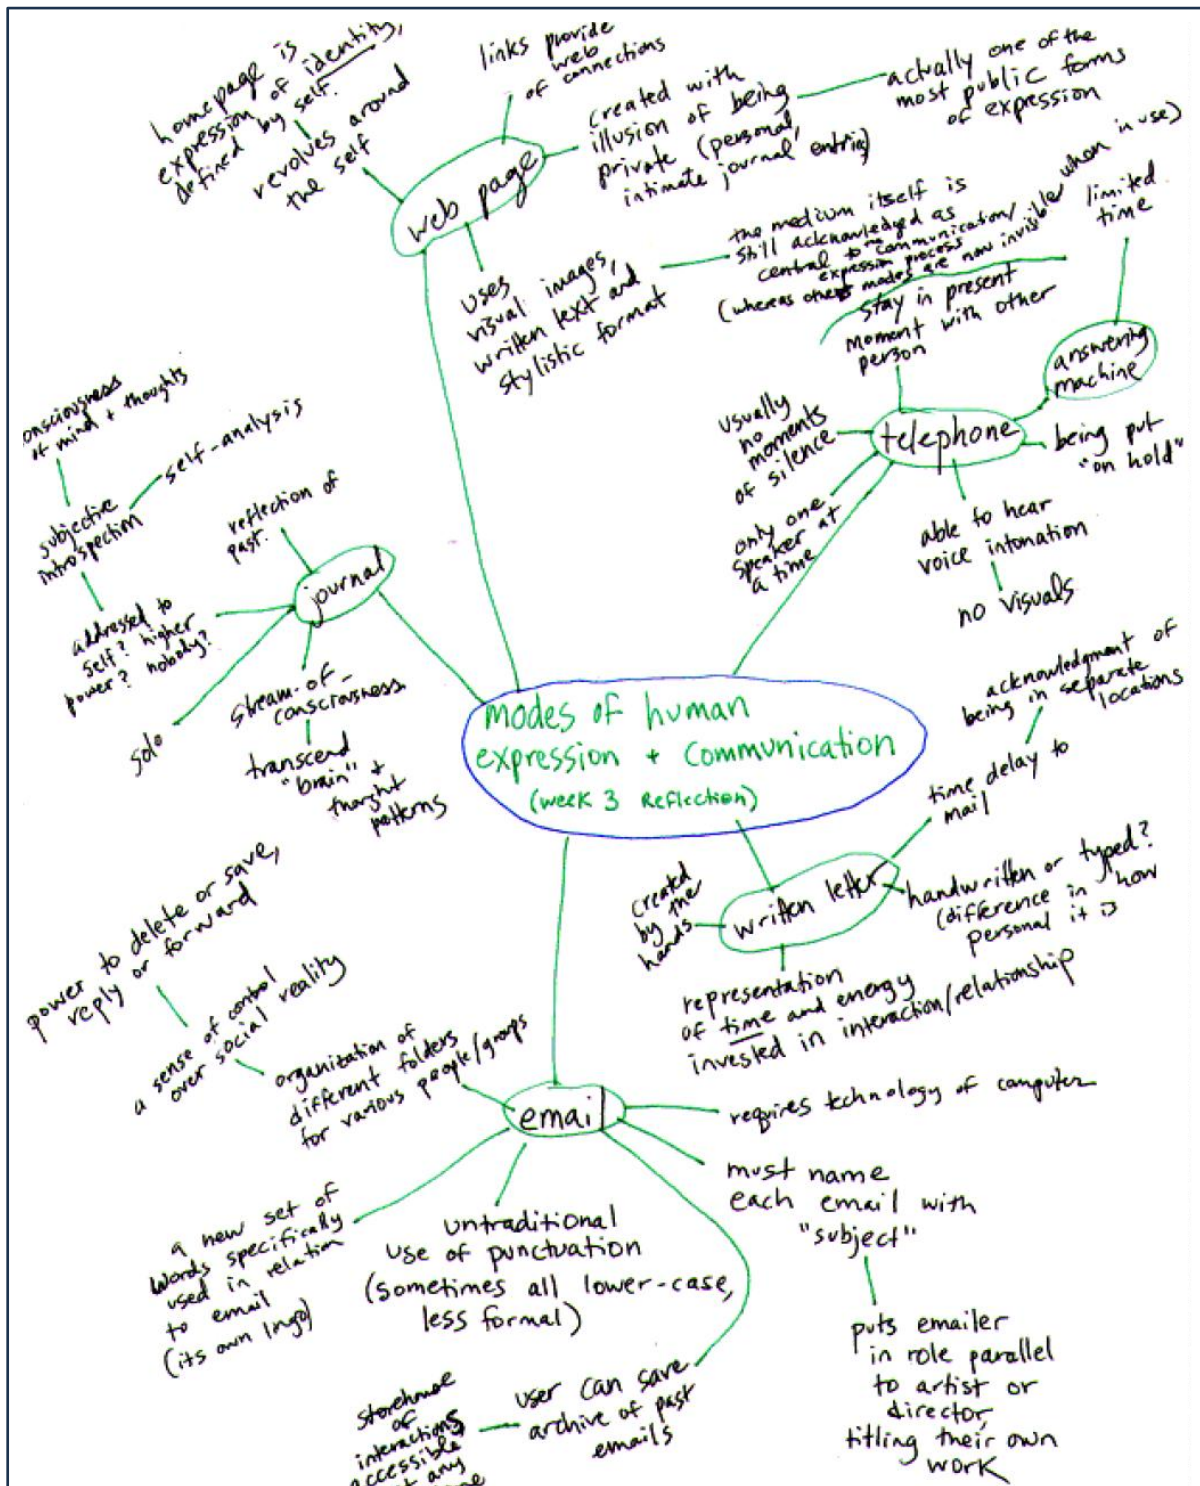 homepage is
expression of identity,
defined by self.
revolves around
the self
links provide
web
of connections
created with
illusion of being
private (personal,
intimate journal entries)
actually one of the
most public forms
of expression
web page
uses
visual images,
written text and
stylistic format
the medium itself is
still acknowledged as
central to the communication/
expression process
(whereas other modes are now invisible when in use)
limited
time
stay in present
moment with other
person
answering
machine
usually
no
moments
of silence
telephone
being put
"on hold"
only one
speaker at
a time
able to hear
voice intonation
no visuals
onsciousness
of mind + thoughts
self-analysis
subjective
introspection
reflection of
past.
journal
addressed to
self? higher
power? nobody?
solo
stream-of-
consciousness
transcend
"brain" +
thought
patterns
modes of human
expression + communication
(week 3 reflection)
acknowledgment of
being in separate
locations
time delay to
mail
written letter
handwritten or typed?
(difference in how
personal it is
created
by the
hands
representation
of time and energy
invested in interaction/relationship
power to delete or save,
reply or forward
a sense of control
over social reality
organization of
different folders
for various people/groups
email
requires technology of computer
must name
each email with
"subject"
puts emailer
in role parallel
to artist or
director,
titling their own
work
a new set of
words specifically
used in relation
to email
(its own lingo)
untraditional
use of punctuation
(sometimes all lower-case,
less formal)
user can save
archive of past
emails
storehouse
of
interactions
accessible
any